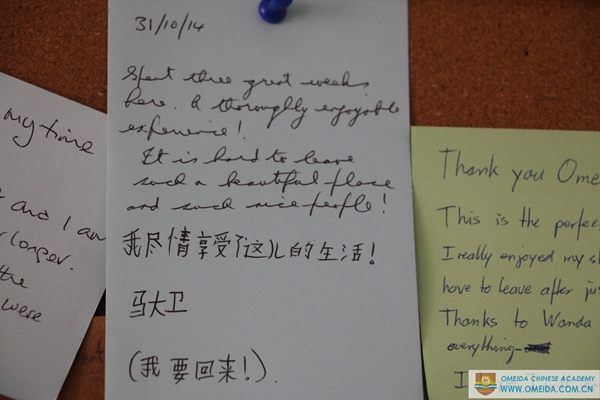 my time
and I am
longer.
the
were
31/10/14
Spent three great weeks
here. A thoroughly enjoyable
experience!
It is hard to leave
such a beautiful place
and such nice people!
我尽情享受了这儿的生活!
马大卫
(我要回来!).
Thank you Ome
This is the perfec
I really enjoyed my s
have to leave after jus
Thanks to Wanda
everything-
I
OMEIDA CHINESE ACADEMY
WWW.OMEIDA.COM.CN